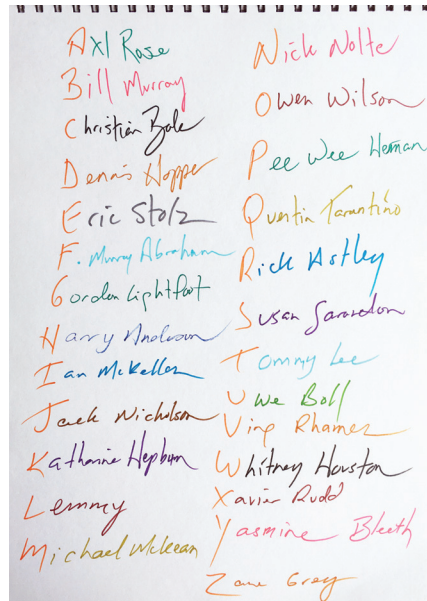 Axl Rose
Bill Murray
Christian Bale
Dennis Hopper
Eric Stolz
F. Murray Abraham
Gordon Lightfoot
Harry Anderson
Ian McKellen
Jack Nicholson
Katharine Hepburn
Lemmy
Michael McKean
Nick Nolte
Owen Wilson
Pee Wee Herman
Quentin Tarantino
Rick Astley
Susan Sarandon
Tommy Lee
Uwe Boll
Ving Rhames
Whitney Houston
Xavier Rudd
Yasmine Bleeth
Zane Grey